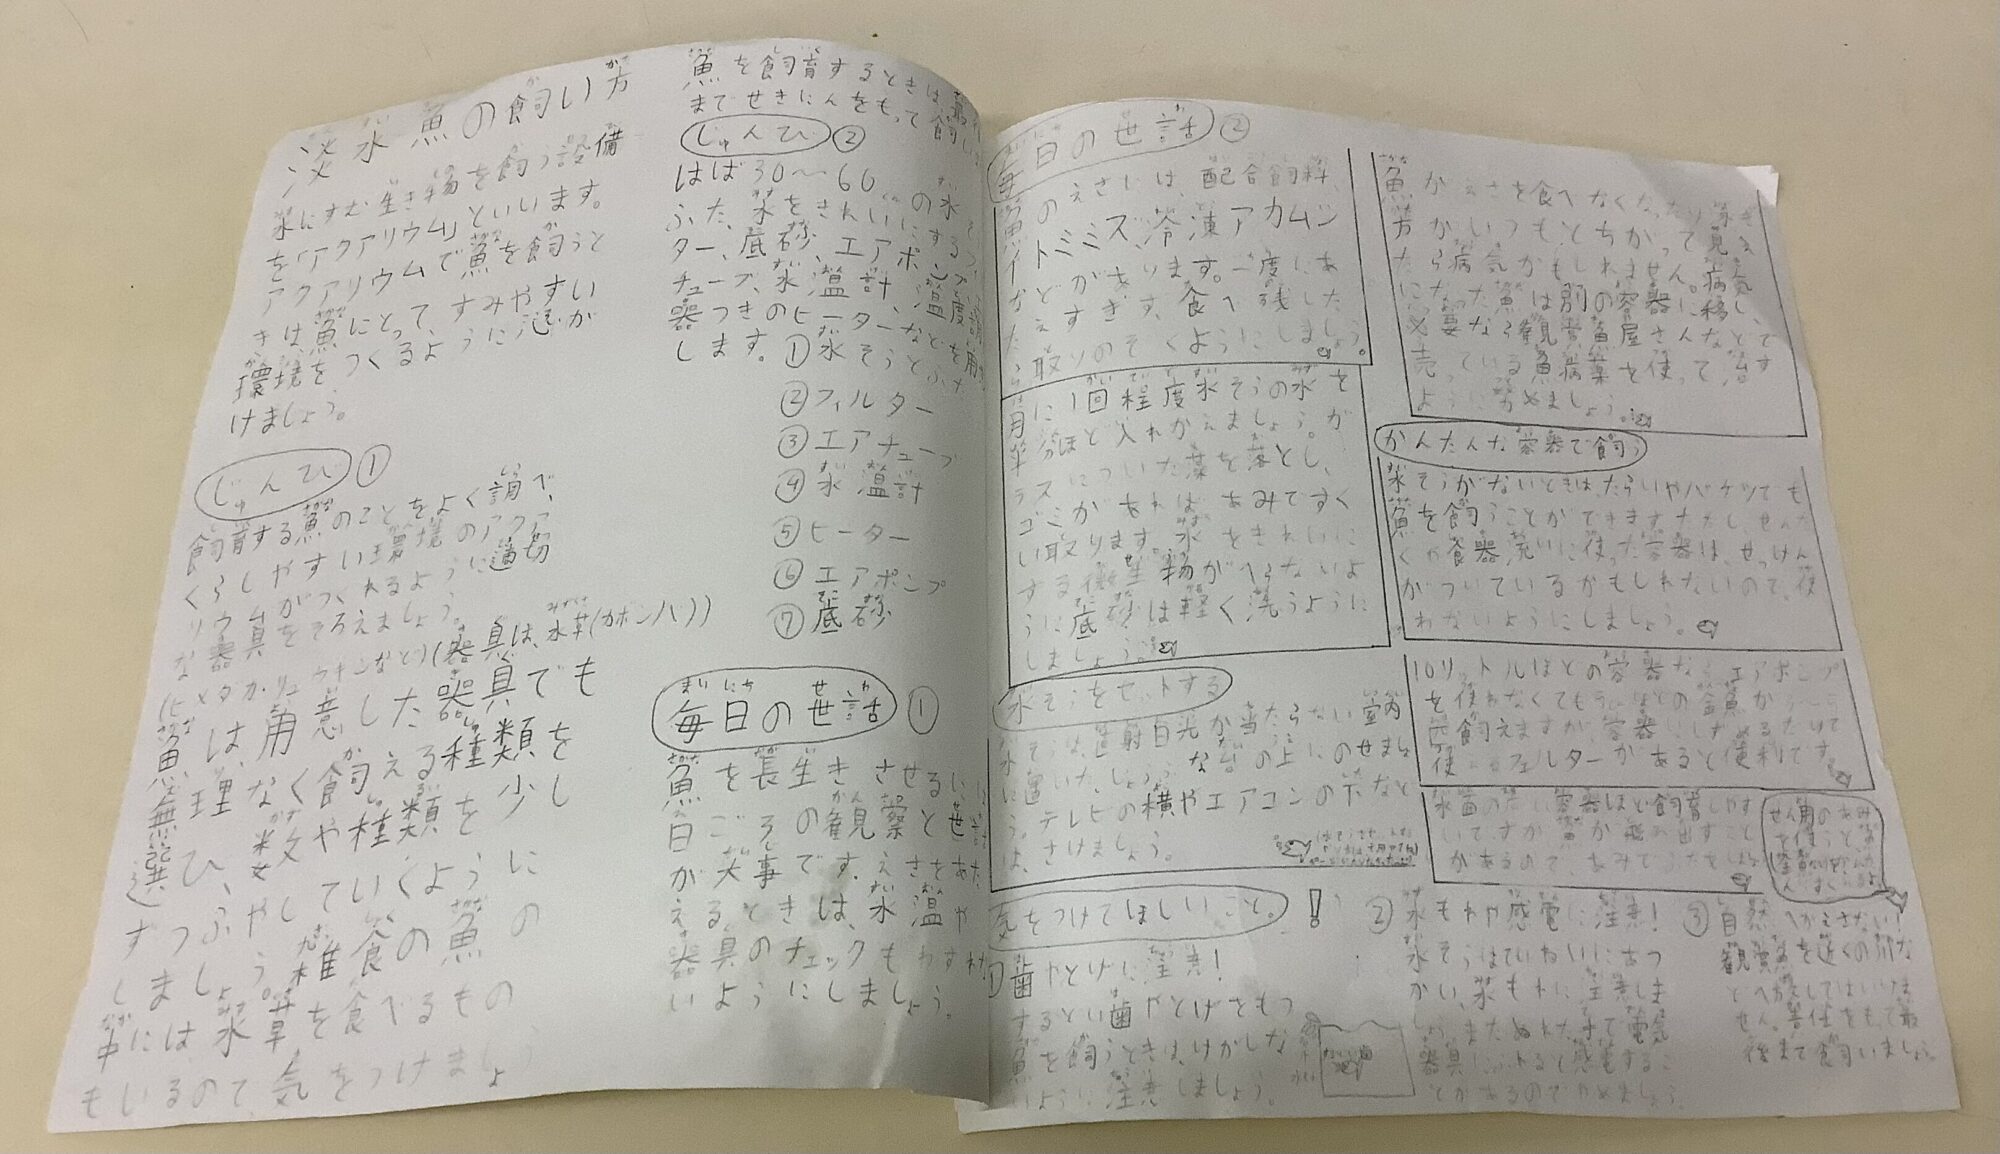 淡水魚の飼い方
水にすむ生き物を飼う設備
を「アクアリウム」といいます。
アクアリウムで魚を飼うと
きは、魚にとって、すみやすい
環境をつくるように心が
けましょう。
じゅんび①
飼育する魚のことをよく調べ、
くらしやすい環境のアクア
リウムがつくれるように適切
な器具をそろえましょう。
(器具は、水草(カボンバ))
魚は、用意した器具でも
無理なく飼える種類を
選び、数や種類を少し
ずつふやしていくように
しましょう。雑食の魚の
中には、水草を食べるもの
もいるので、気をつけましょう
魚を飼育するときは、最
までせきにんをもって飼
じゅんび②
はば30〜60の水そ
ふた、水をきれいにする
ター、底砂、エアポンプ
チューブ、水温計、温度調
器つきのヒーターなどを用
します。
①水そうとふた
②フィルター
③エアチューブ
④水温計
⑤ヒーター
⑥エアポンプ
⑦底砂
毎日の世話①
魚を長生きさせるに
日ごろの観察と世話
が大事です。えさをあた
えるときは、水温や
器具のチェックもわすれな
いようにしましょう。
毎日の世話②
魚のえさには、配合飼料、
イトミミズ、冷凍アカムシ
などがあります。一度にあ
たえすぎず、食べ残した
ら取りのぞくようにしましょう。
月に1回程度水そうの水を
半分ほど入れかえましょう。ガ
ラスについた藻を落とし、
ゴミがあればあみですく
い取ります。水をきれいに
する微生物がへらないよ
うに底砂は軽く洗うように
しましょう。
水そうをセットする
水そうは、直射日光が当たらない室内
に置いたじょうぶな台の上にのせましょ
う。テレビの横やエアコンの下など
は、さけましょう。
気をつけてほしいこと。!
①歯やとげに注意!
するどい歯やとげをもつ
魚を飼うときは、けがしな
いように注意しましょう。
魚がえさを食べなくなったり、泳ぎ
方がいつもとちがって見え
たら病気かもしれません。病気
になった魚は別の容器に移し、
必要なら観賞魚屋さんなどで
売っている魚病薬を使って、治す
ように努めましょう。
かんたんな容器で飼う
水そうがないときは、たらいやバケツでも
魚を飼うことができます。ただし、せんた
くや食器洗いに使った容器は、せっけん
がついているかもしれないので、使
わないようにしましょう。
10リットルほどの容器ならエアポンプ
を使わなくても
匹飼えますが、容器に
使うフィルターがあると便利です。
水面の広い容器ほど飼育しやす
いですが、魚が飛び出すこと
があるので、あみで
②水もれや感電に注意!
水そうはていねいにあつ
かい、水もれに注意しま
しょう。また、ぬれた手で電気
器具にふれると感電するこ
とがあるのでやめましょう。
③自然へかえさない!
観賞魚を近くの川な
どへかえしてはいけま
せん。責任をもって最
後まで飼いましょう。